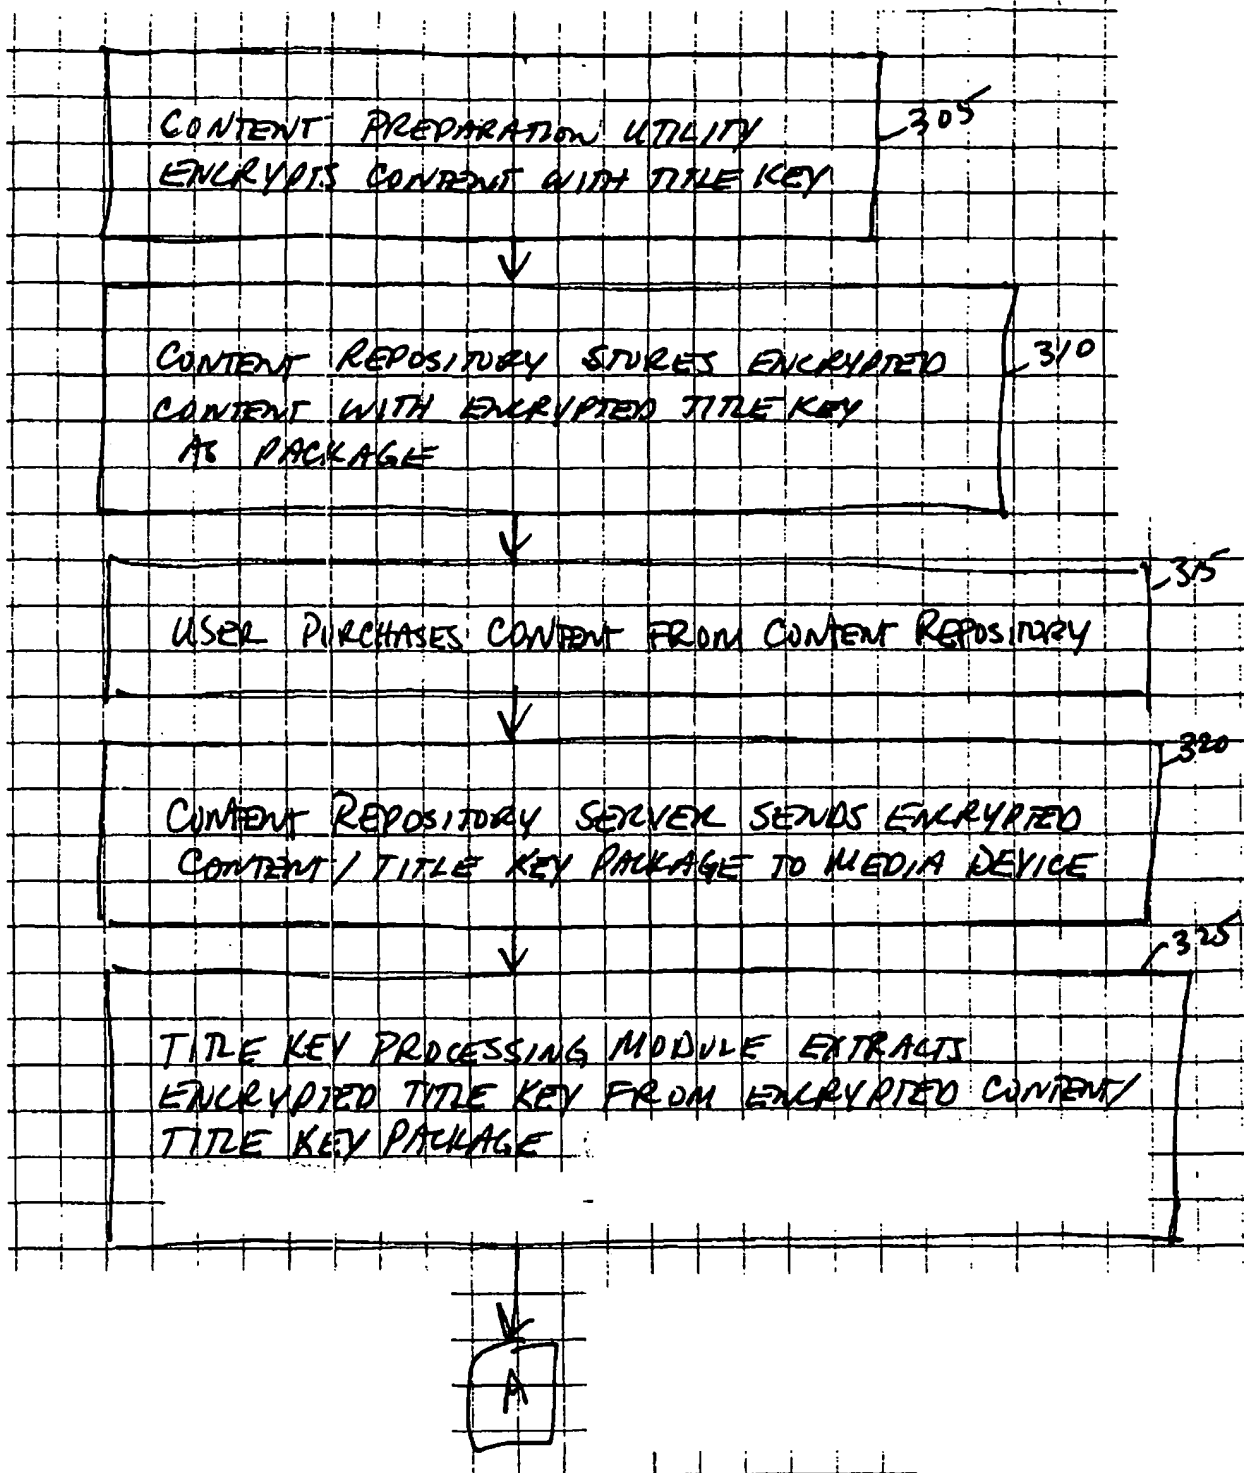 CONTENT PREPARATION UTILITY
305
ENCRYPTS CONTENT WITH TITLE KEY
CONTENT REPOSITORY STORES ENCRYPTED
310
CONTENT WITH ENCRYPTED TITLE KEY
AS PACKAGE
315
USER PURCHASES CONTENT FROM CONTENT REPOSITORY
320
CONTENT REPOSITORY SERVER SENDS ENCRYPTED
CONTENT / TITLE KEY PACKAGE TO MEDIA DEVICE
325
TITLE KEY PROCESSING MODULE EXTRACTS
ENCRYPTED TITLE KEY FROM ENCRYPTED CONTENT/
TITLE KEY PACKAGE
A